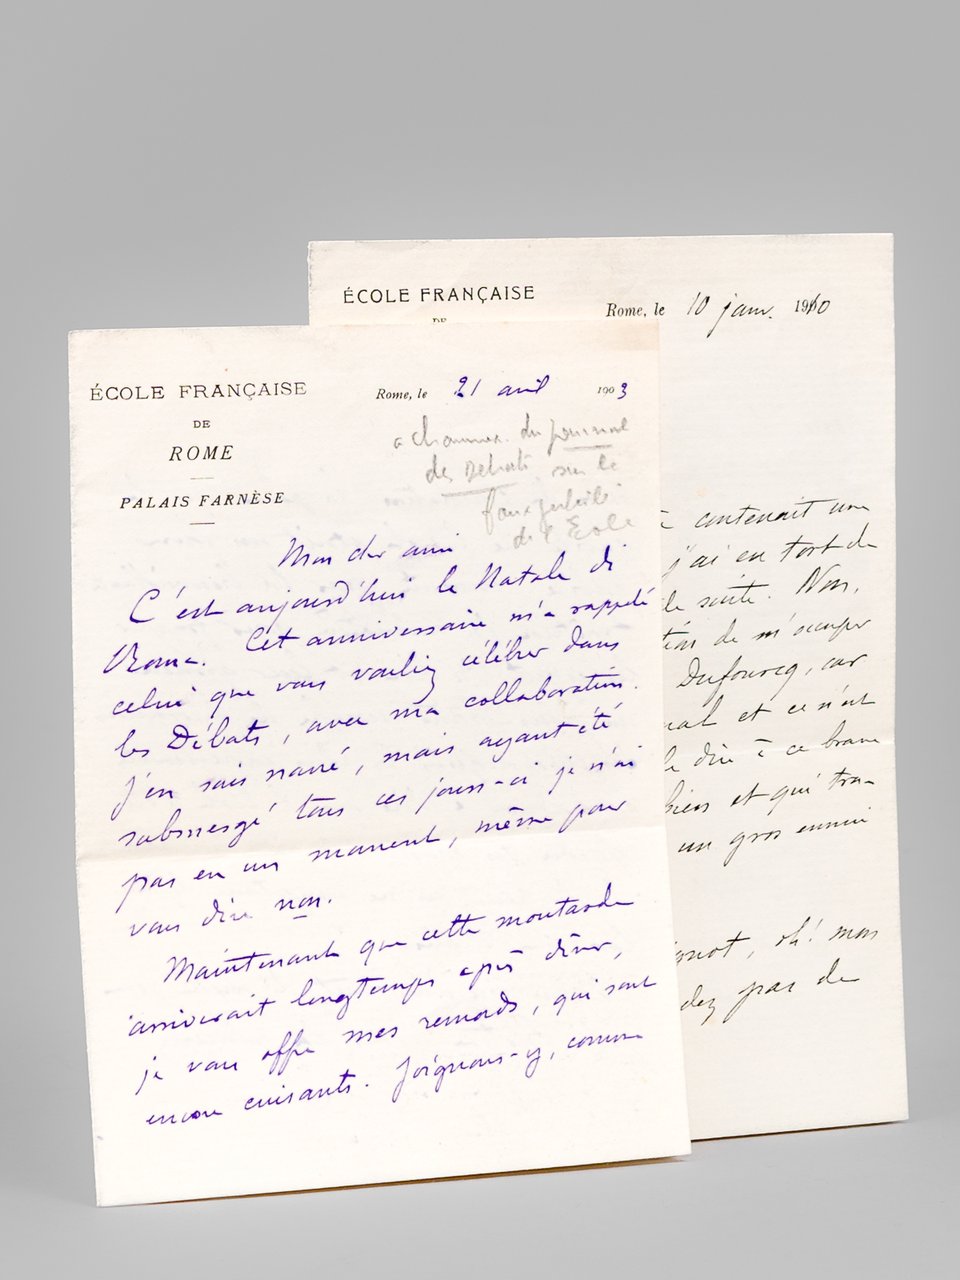 ÉCOLE FRANÇAISE
DE
ROME
PALAIS FARNÈSE
Rome, le 21 avril 1903
a Chaumeix du journal
des Débats, sur le
de l'Ecole
Mon cher ami
C'est aujourd'hui le Natale di
Roma. Cet anniversaire m'a rappelé
celui que vous vouliez célébrer dans
les Débats, avec ma collaboration.
J'en suis navré, mais ayant été
submergé tous ces jours-ci je n'ai
pas eu un moment, même pour
vous dire non.
Maintenant que cette moutarde
arriverait longtemps après dîner,
je vous offre mes remords, qui sont
encore cuisants. Joignons-y, comme
ÉCOLE FRANÇAISE
DE
Rome, le 10 janv. 1910
contenait une
j'ai eu tort de
le suite. Non,
de m'occuper
Dufourcq, car
et ce n'est
le dire à ce brave
bien et qui tra-
un gros ennui
oh! mon
dez pas de